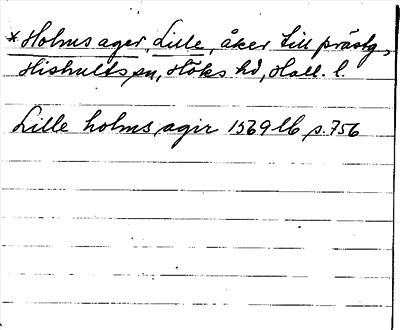 *Holms ager, Lille, åker till prästg,
Hishults sn, Höks hd, Hall. l.
Lille holms agir 1569 lb p. 756